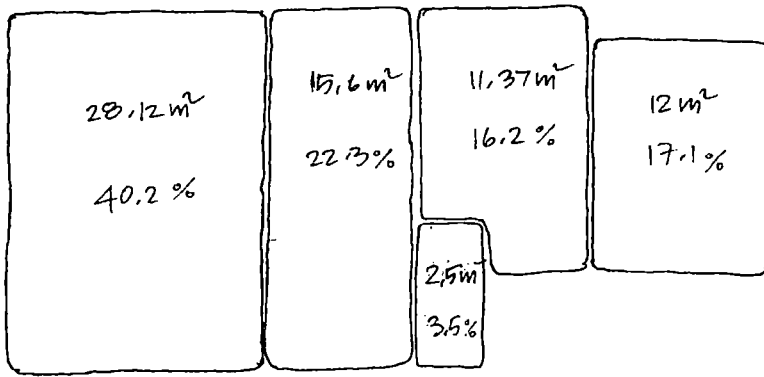 28.12 m²
40.2 %
15,6 m²
22.3%
11.37 m²
16.2 %
12 m²
17.1 %
2,5 m²
3.5%